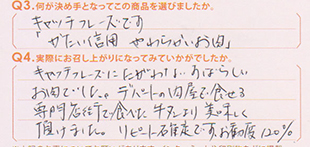 Q3.何が決め手となってこの商品を選びましたか。
キャッチフレーズです
「かたい信用 やわらかいお肉」
Q4.実際にお召し上がりになってみていかがでしたか。
キャッチフレーズにたがわないすばらしい
お肉でした。デパートの肉屋で食せる
専門店街で食べた牛タンより美味しく
頂けました。リピート確定です。お勧度120%